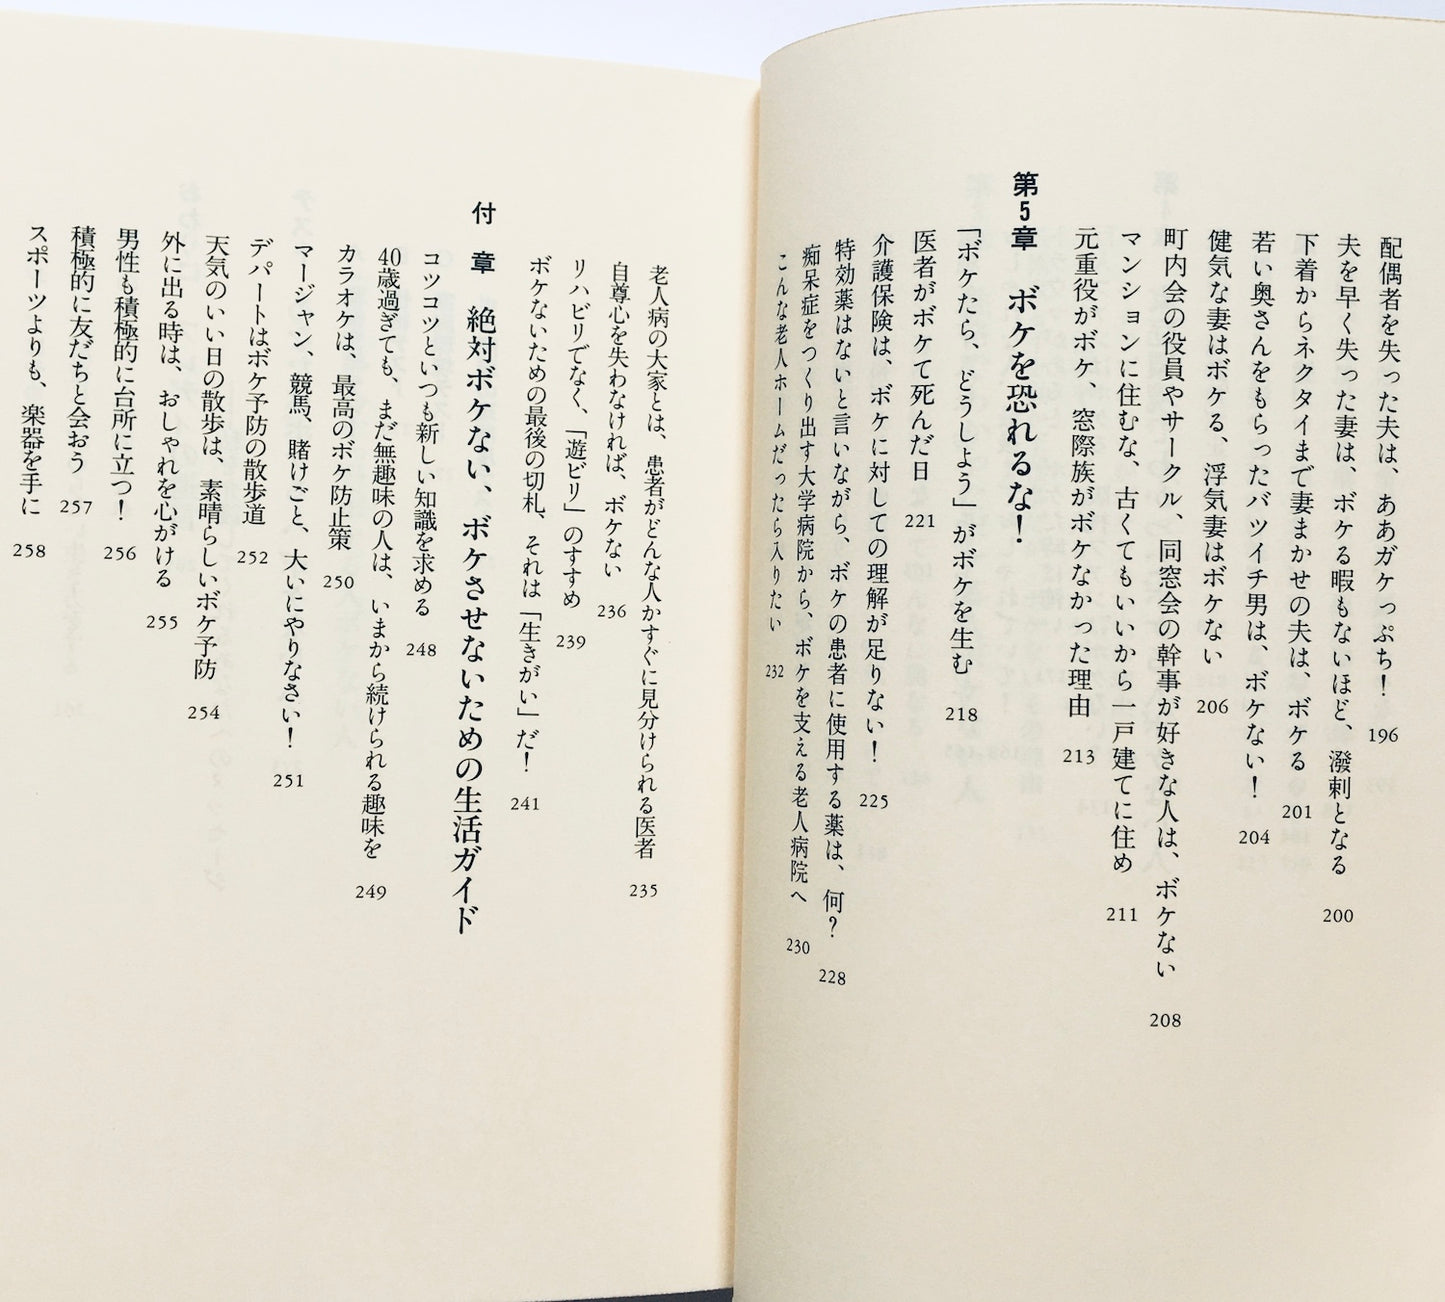 配偶者を失った夫は、ああガケっぷち! 196
夫を早く失った妻は、ボケる暇もないほど、潑剌となる 200
下着からネクタイまで妻まかせの夫は、ボケる 201
若い奥さんをもらったバツイチ男は、ボケない! 204
健気な妻はボケる、浮気妻はボケない 206
町内会の役員やサークル、同窓会の幹事が好きな人は、ボケない 208
マンションに住むな、古くてもいいから一戸建てに住め 211
元重役がボケ、窓際族がボケなかった理由 213
第5章 ボケを恐れるな!
「ボケたら、どうしよう」がボケを生む 218
医者がボケて死んだ日 221
介護保険は、ボケに対しての理解が足りない! 225
特効薬はないと言いながら、ボケの患者に使用する薬は、何? 228
痴呆症をつくり出す大学病院から、ボケを支える老人病院へ 230
こんな老人ホームだったら入りたい 232
老人病の大家とは、患者がどんな人かすぐに見分けられる医者 235
自尊心を失わなければ、ボケない 236
リハビリでなく、「遊ビリ」のすすめ 239
ボケないための最後の切札、それは「生きがい」だ! 241
付章 絶対ボケない、ボケさせないための生活ガイド
コツコツといつも新しい知識を求める 248
40歳過ぎても、まだ無趣味の人は、いまから続けられる趣味を 249
カラオケは、最高のボケ防止策 250
マージャン、競馬、賭けごと、大いにやりなさい! 251
デパートはボケ予防の散歩道 252
天気のいい日の散歩は、素晴らしいボケ予防 254
外に出る時は、おしゃれを心がける 255
男性も積極的に台所に立つ! 256
積極的に友だちと会おう 257
スポーツよりも、楽器を手に 258